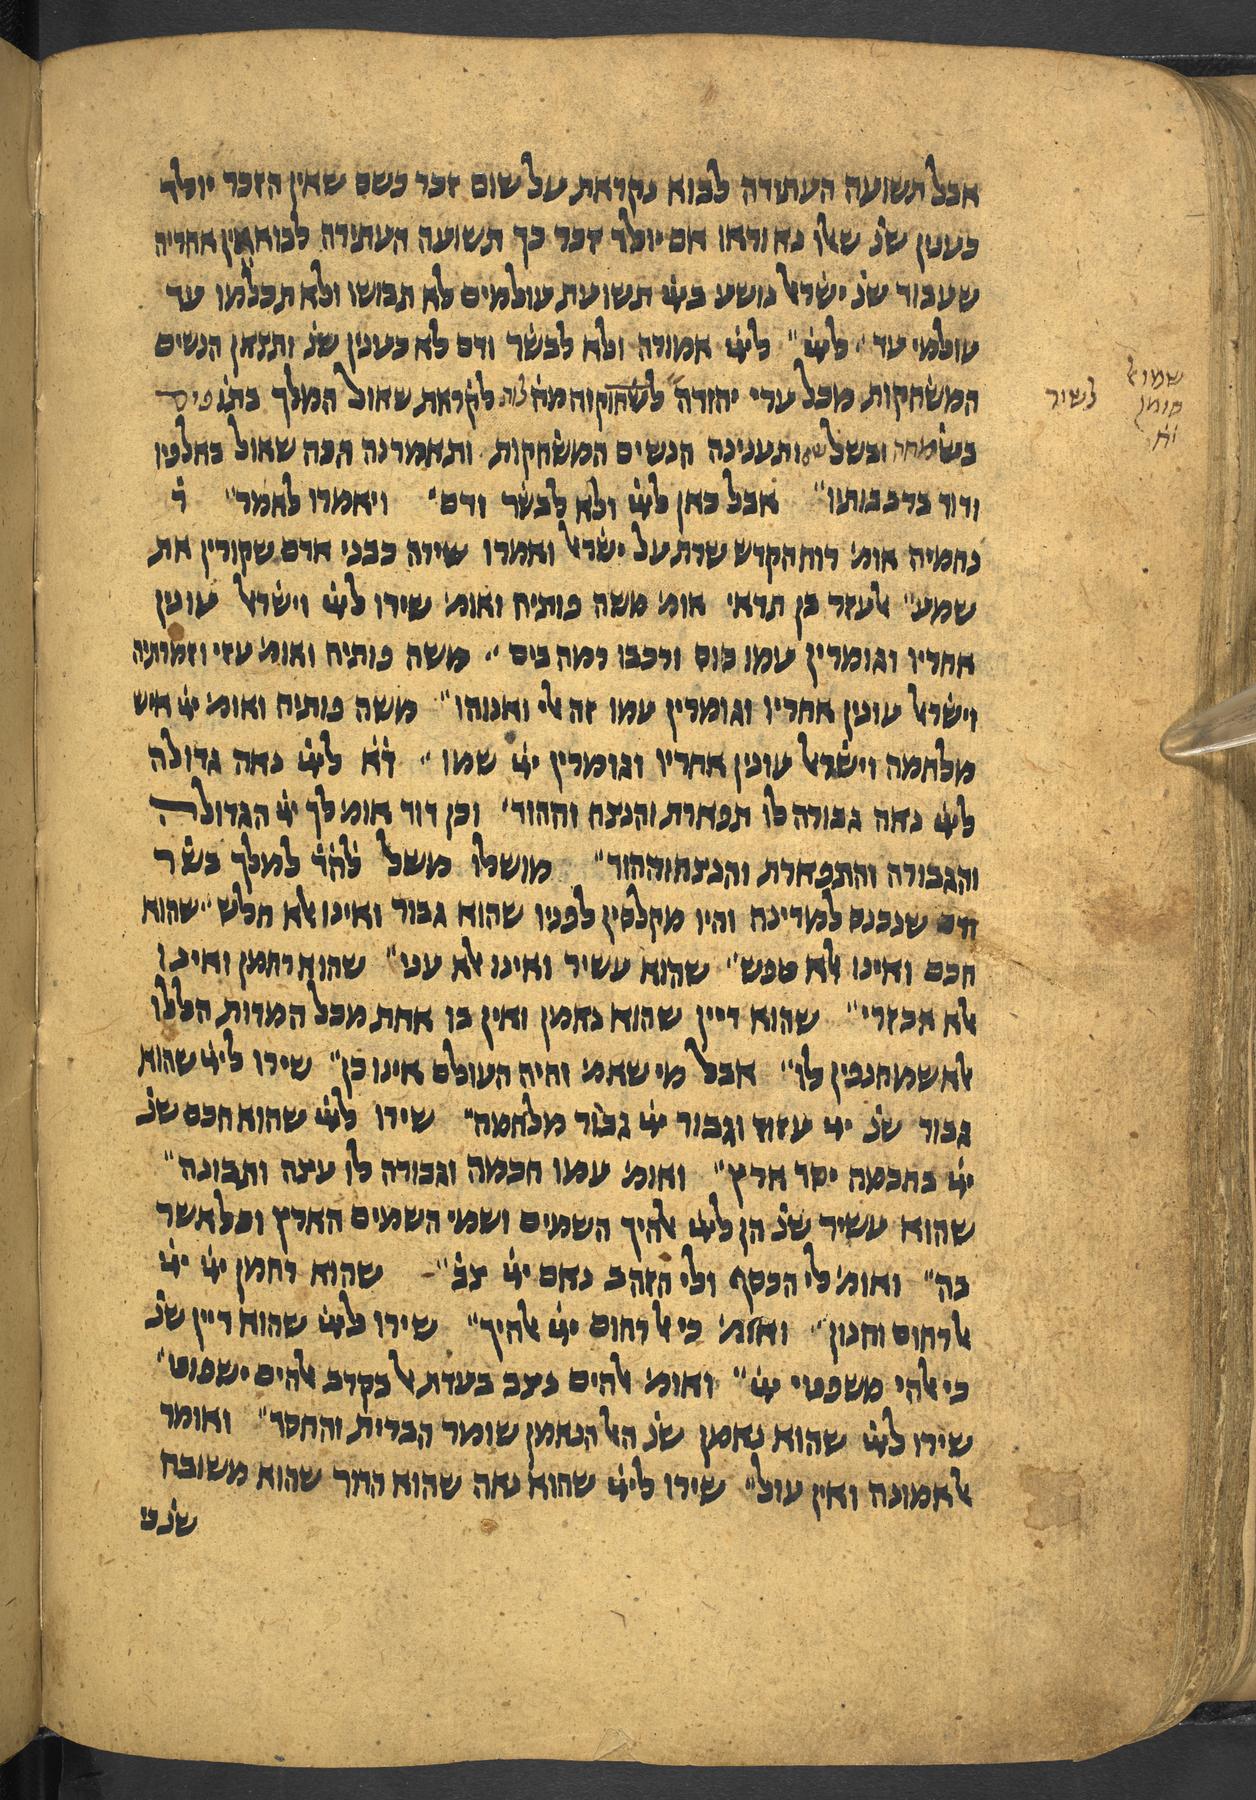 אבל תשועה העתידה לבוא נקראת על שום זכר כשם שאין הזכר יולד
כענין שנ׳ שאלו נא וראו אם יולד זכר כך תשועה העתידה לבוא אין אחריה
שעבוד שנ׳ ישראל נושע ביי תשועת עולמים לא תבושו ולא תכלמו עד
עולמי עד״ ליי״ ליי אמורה ולא לבשר ודם לא כענין שנ׳ ותצאן הנשים
המשחקות מכל ערי יהודה לקראת שאול המלך בתופים
בשמחה ובשל ותענינה הנשים המשחקות ותאמרנה הכה שאול באלפיו
ודוד ברבבותיו״ אבל כאן ליי ולא לבשר ודם״ ויאמרו לאמר״ ר׳
נחמיה אומ׳ רוח הקדש שרת על ישראל ואמרו שירה כבני אדם שקורין את
שמע״ אלעזר בן תדאי אומ׳ משה פותיח ואומ׳ שירו ליי וישראל עונין
אחריו וגומרין עמו סוס ורכבו רמה בים״ משה פותיח ואומ׳ עזי וזמרת יה
וישראל עונין אחריו וגומרין עמו זה אלי ואנוהו״ משה פותיח ואומ׳ יי איש
מלחמה וישראל עונין אחריו וגומרין יי שמו״ ד״א ליי נאה גדולה
ליי נאה גבורה לו תפארת והנצח וההוד׳ וכן דוד אומ׳ לך יי הגדולה
והגבורה והתפארת והנצח וההוד״ מושלו משל למלך בשר
ודם שנכנס למדינה והיו מקלסין לפניו שהוא גבור ואינו אלא חלש״ שהוא
חכם ואינו אלא טפש״ שהוא עשיר ואינו אלא עני״ שהוא רחמן ואינו
אלא אכזרי״ שהוא דיין שהוא נאמן ואין בו אחת מכל המדות הללו
אלא שמחנפין לו״ אבל מי שאמ׳ והיה העולם אינו כן״ שירו ליי שהוא
גבור שנ׳ יי עזוז וגבור יי גבור מלחמה״ שירו ליי שהוא חכם שנ׳
יי בחכמה יסד ארץ״ ואומ׳ עמו חכמה וגבורה לו עצה ותבונה״
שהוא עשיר שנ׳ הן ליי אלהיך השמים ושמי השמים הארץ וכל אשר
בה״ ואומ׳ לי הכסף ולי הזהב נאם יי צב׳״ שהוא רחמן יי יי
אל רחום וחנון״ ואומ׳ כי אל רחום יי אלהיך״ שירו ליי שהוא דיין שנ׳
כי אלהי משפט יי״ ואומ׳ אלהים נצב בעדת אל בקרב אלהים ישפוט״
שירו ליי שהוא נאמן שנ׳ האל הנאמן שומר הברית והחסד״ ואומר
אל אמונה ואין עול״ שירו ליי שהוא נאה שהוא הדר שהוא משובח
שנ׳ מי
שמואל
סימן לשיר